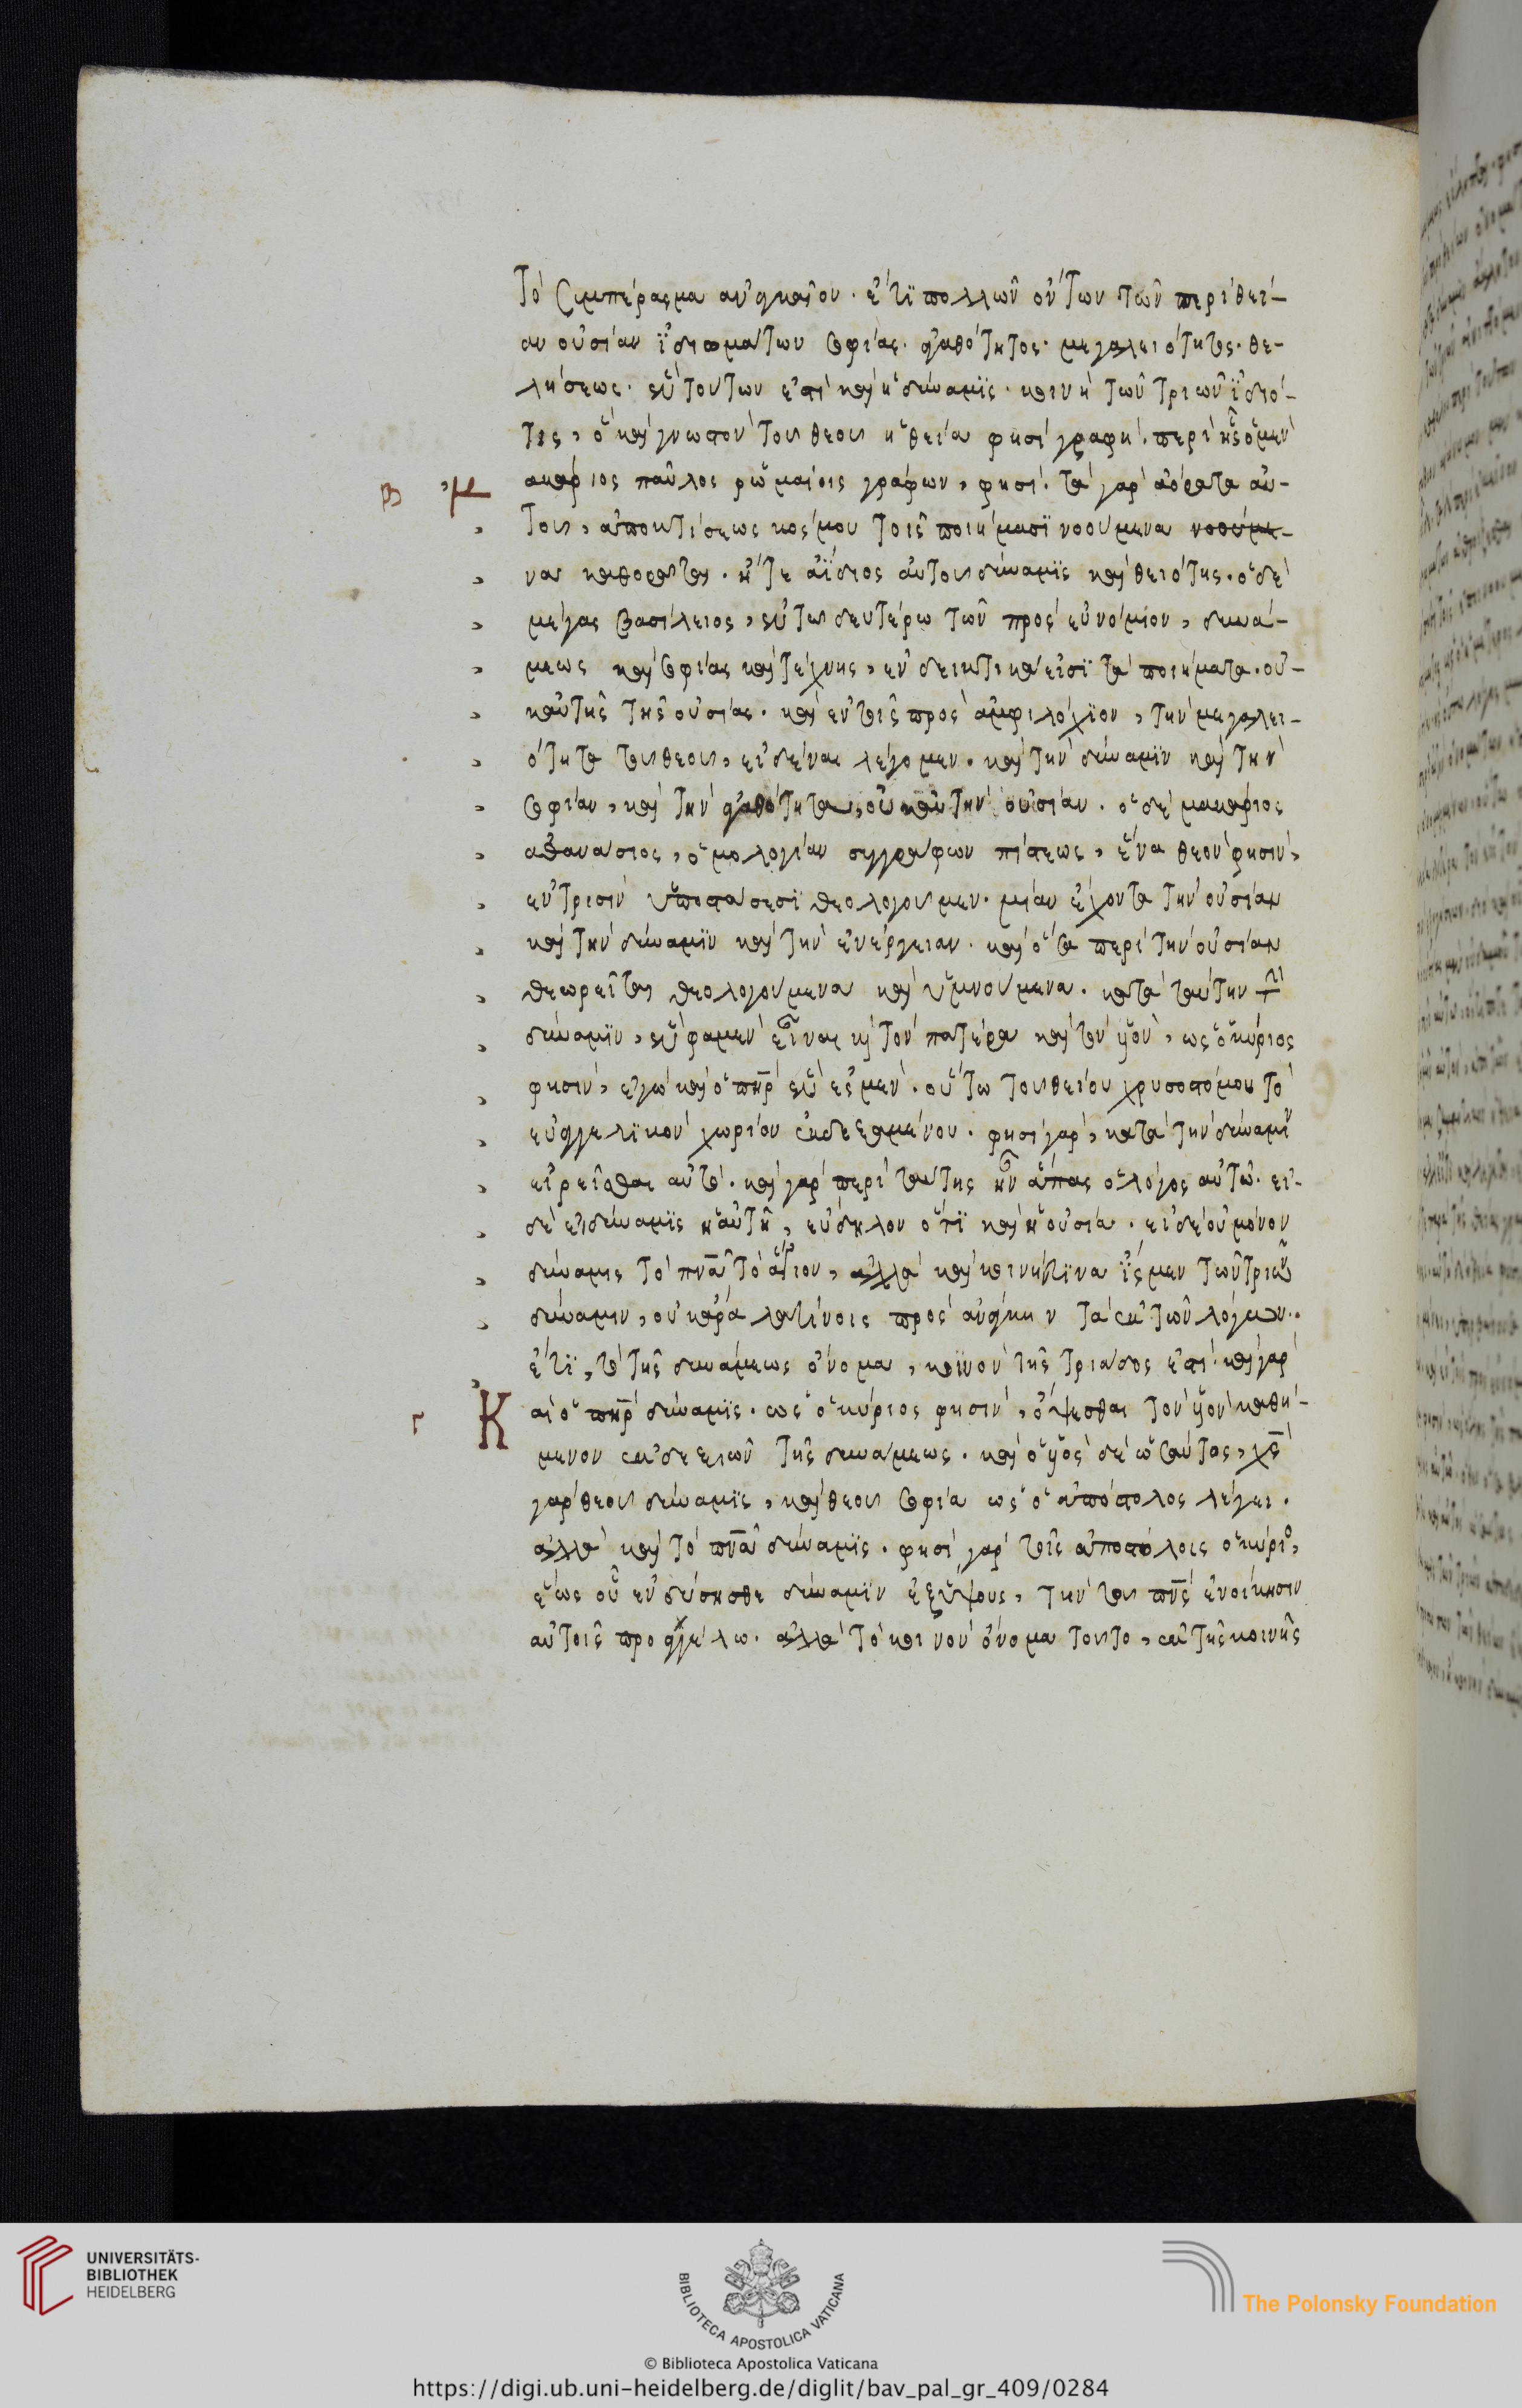 Τὸ συμπέρασμα ἀναγκαῖον. ἔτι πολλῶν ὄντων τῶν περὶ θεί-
αν οὐσίαν ἰδιωμάτων σοφίας. ἀγαθότητος. μεγαλειότητος. θε-
λήσεως. ἓν τούτων ἐστὶ καὶ ἡ δύναμις. κοινὴ τῶν τριῶν ἰδιό-
της, ὃ καὶ γνωστὸν τοῦ θεοῦ ἡ θεία φησὶ γραφή. περὶ ἧς ὁ μὲν
β μακάριος παῦλος ῥωμαίοις γράφων, φησί. τὰ γὰρ ἀόρατα αὐ-
τοῦ, ἀπὸ κτίσεως κόσμου τοῖς ποιήμασι νοούμενα νοούμε-
να καθορᾶται. ἥ τε ἀΐδιος αὐτοῦ δύναμις καὶ θειότης. ὁ δὲ
μέγας βασίλειος, ἐν τῶ δευτέρω τῶν πρὸς εὐνόμιον, δυνά-
μεως καὶ σοφίας καὶ τέχνης, ἐνδεικτικά εἰσι τὰ ποιήματα. οὐ-
κ αὐτῆς τῆς οὐσίας. καὶ ἐν τοῖς πρὸς ἀμφιλόχιον, τὴν μεγαλει-
ότητα τοῦ θεοῦ, εἰδέναι λέγομεν. καὶ τὴν δύναμιν καὶ τὴν
σοφίαν, καὶ τὴν ἀγαθότητα, οὐκ αὐτὴν οὐσίαν. ὁ δὲ μακάριος
ἀθανάσιος, ὁμολογίαν συγγράφων πίστεως, ἕνα θεὸν φησὶν,
ἐν τρισὶν ὑποστάσεσι θεολογοῦμεν. μίαν ἔχοντα τὴν οὐσίαν
καὶ τὴν δύναμιν καὶ τὴν ἐνέργειαν. καὶ ὅσα περὶ τὴν οὐσίαν
θεωρεῖται θεολογούμενα καὶ ὑμνούμενα. κατὰ ταύτην τὴν
δύναμιν, ἓν φαμὲν εἶναι καὶ τὸν πατέρα καὶ τὸν υἱὸν, ὡς ὁ κύριος
φησὶν, ἐγὼ καὶ ὁ πηρ ἓν ἐσμέν. οὕτω τοῦ θείου χρυσοστόμου τὸ
εὐαγγελικὸν χωρίον ἐκδεξαμένου. φησὶ γὰρ, κατὰ τὴν δύναμιν
εἰρεῖσθαι αὐτό. καὶ γὰρ περὶ ταύτης ἦν ἅπας ὁ λόγος αὐτῶ. εἰ
δὲ ἡ δύναμις ἡ αὐτὴ, εὔδηλον ὅτι καὶ ἡ οὐσία. εἰ δὲ οὐ μόνον
δύναμις τὸ πνα τὸ ἅγιον, ἀλλὰ καὶ κοινήν τινα ἴσμεν τῶν τριῶν
δύναμιν, οὐκ ἄρα λατίνοις πρὸς ἀνάγκην τὰ ἐκ τῶν λόγων.
ἔτι, τὸ τῆς δυνάμεως ὄνομα, κοινὸν τῆς τριάδος ἐστί. καὶ γὰρ
γ Καὶ ὁ πηρ δύναμις. ὡς ὁ κύριος φησὶν, ὄψεσθαι τὸν υἱὸν καθή-
μενον ἐκ δεξιῶν τῆς δυνάμεως. καὶ ὁ υἱὸς δὲ ὡσαύτως, χς
γὰρ θεοῦ δύναμις, καὶ θεοῦ σοφία ὡς ὁ ἀπόστολος λέγει.
ἀλλὰ καὶ τὸ πνα δύναμις. φησὶ γὰρ τοῖς ἀποστόλοις ὁ κύριος,
ἕως οὗ ἐνδύσησθε δύναμιν ἐξ ὕψους, τὴν τοῦ πνς ἐνοίκησιν
αὐτοῖς προαγγέλλω. ἀλλὰ τὸ κοινὸν ὄνομα τοῦτο, ἐκ τῆς κοινῆς
UNIVERSITÄTS-
BIBLIOTHEK
HEIDELBERG
BIBLIOTECA APOSTOLICA VATICANA
The Polonsky Foundation
© Biblioteca Apostolica Vaticana
https://digi.ub.uni-heidelberg.de/diglit/bav_pal_gr_409/0284